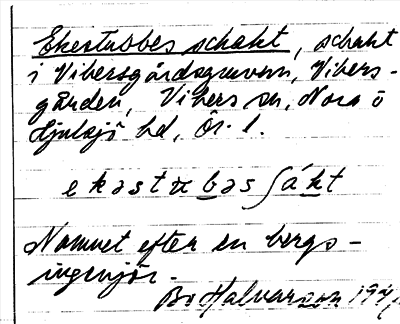 Ekestubbes schakt, schakt
i Vibersgårdsgruvorna, Vibers-
gården, Vibers sn, Nora o
Hjulsjö bd, Ör. l.
ekəstubəs ʃákt
Namnet efter en bergs-
ingenjör.
Bo Halvarson